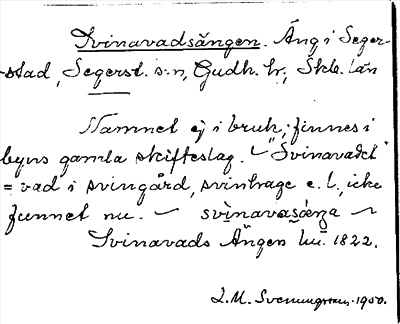 Svinavadsängen. Äng i Seger-
stad, Segerst. s:n, Gudh. hr., Skb. län
Namnet ej i bruk; finnes i
byns gamla skifteslag. ~ "Svinavadet"
= vad i svingård, svintrage e. l., icke
funnet nu. ~ svinavasæŋa ~
Svinavads Ängen hu. 1822.
L.M. Svenungsson. 1950.